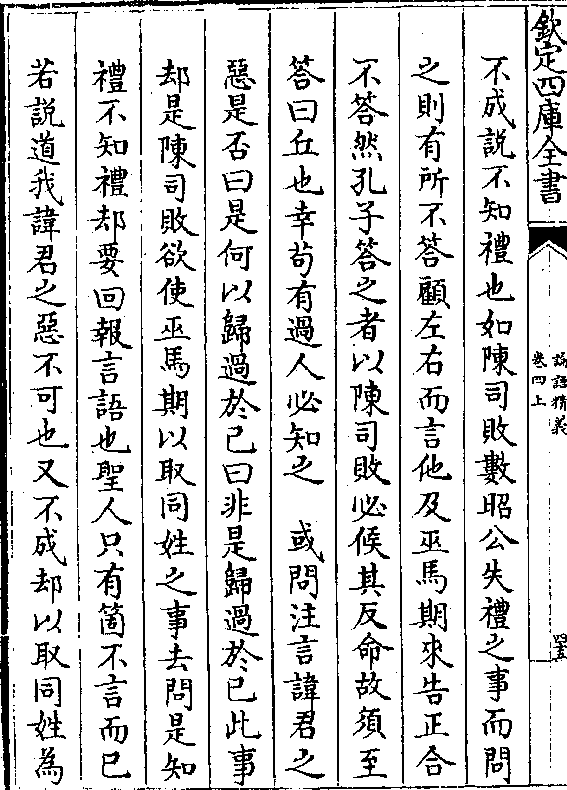 欽定四庫全書
論語精義
卷四上
罢
不成說不知禮也如陳司敗數昭公失禮之事而問
之則有所不答顧左右而言他及巫馬期來告正合
不答然孔子答之者以陳司敗必候其反命故須至
答曰丘也幸苟有過人必知之　或問注言諱君之
惡是否曰是何以歸過於己曰非是歸過於己此事
却是陳司敗欲使巫馬期以取同姓之事去問是知
禮不知禮却要回報言語也聖人只有箇不言而已
若說道我諱君之惡不可也又不成却以取同姓為